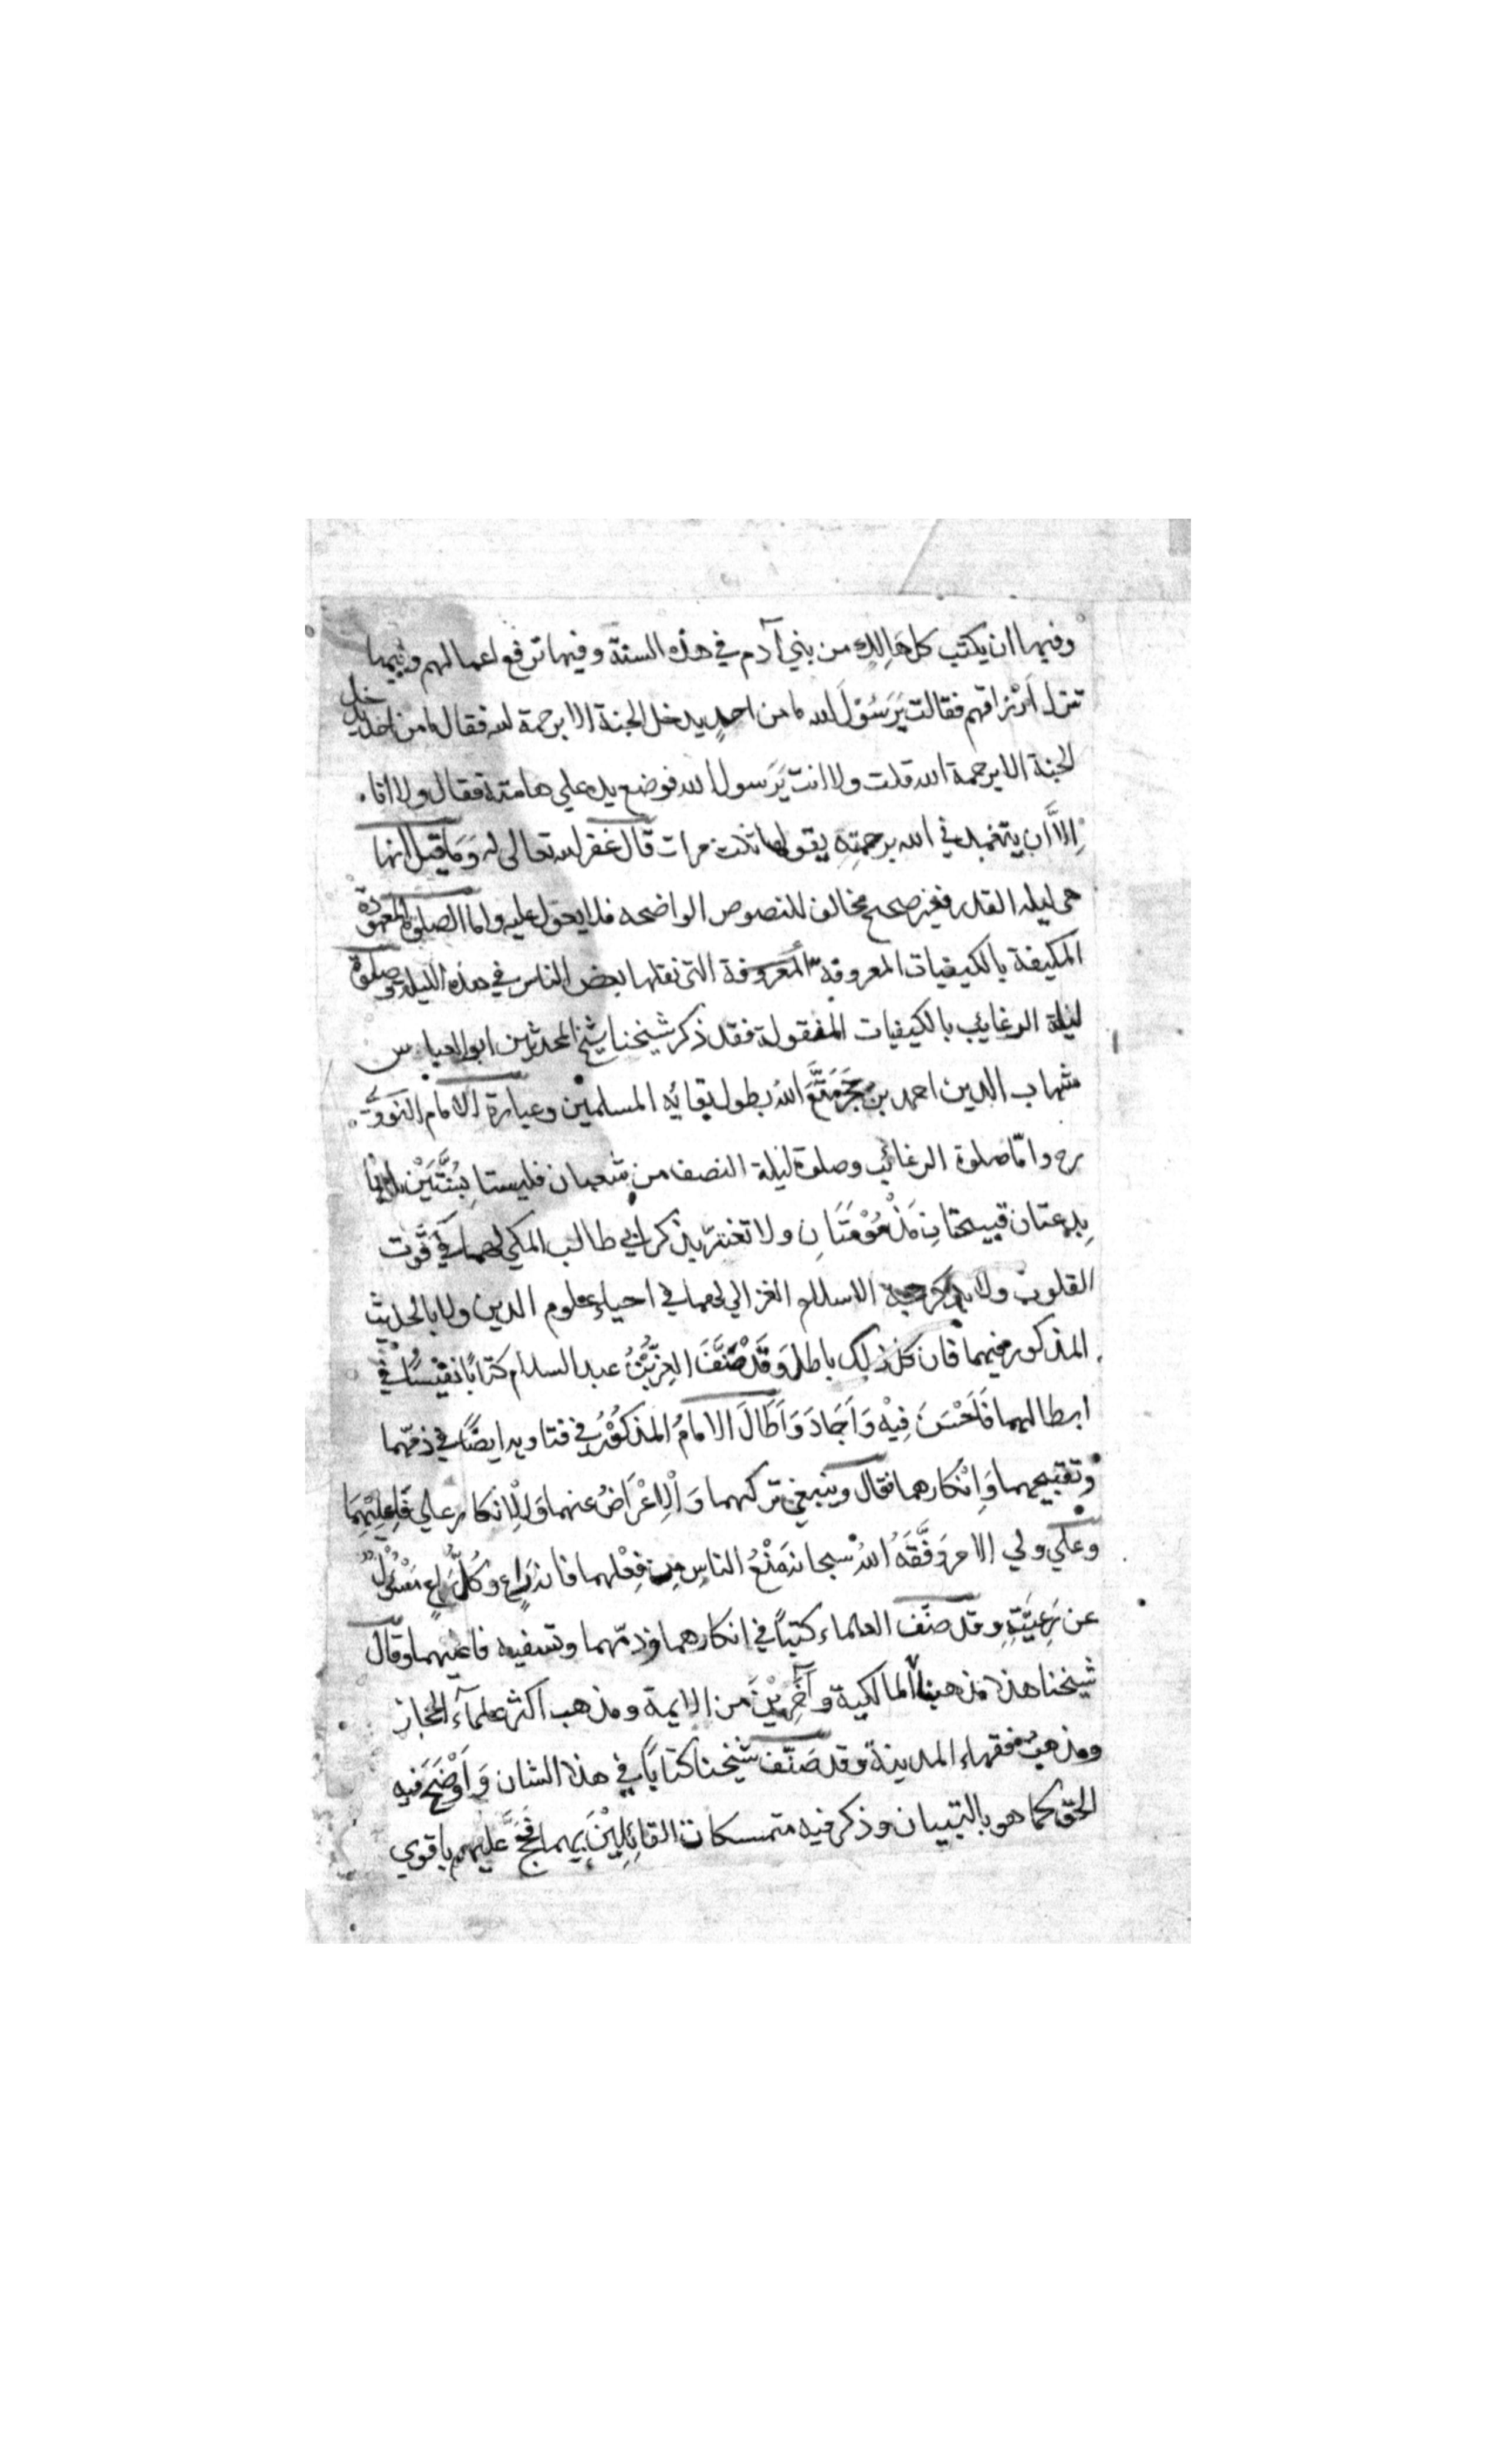 وفيها ان يكتب كل هَالِكٍ من بني آدم في هذه السنة وفيها ترفع اعمالهم وفيها
تنزل اَرْزاقهم فقالت يَرَسُوْلَ الله ما من احدٍ يدخل الجنة الا برحمة الله فقال ما من احد يدخل
الجنة الا برحمة الله قلت ولا انت يَرَسول الله فوضع يده علي هامته فقال ولا انا
اِلَّا اَن يتغمدني الله برحمتِهِ يقولها ثلث مرات قال غفر الله تعالى له وَمَا قيل انها
هي ليله القدر فغير صحيح مخالف للنصوص الواضحه فلا يعول عليه واما الصلوة المعهودة
المكيفة بالكيفيات المعروفة المعروفة التى نقلها بعض الناس في هذه الليلة وصلوة
ليلة الرغايب بالكيفيات المنقولة فقد ذكر شيخنا شيخ المحدثين ابو العباس
شهاب الدين احمد بن حَجَر مَتَّعَ اللهُ بطول بقائِه المسلمين وعبارة الامام النووي
رح وامّا صلوة الرغائب وصلوة ليلة النصف من شعبان فليستا بِسُنَّتَيْن بل هما
بِدعتان قبيحتانِ مَذْمُوْمَتَانِ ولا تغترّ بذكر ابي طالب المكي لهما في قُوَّت
القلوب ولا بذكر حجة الاسلام الغزالي لهما في احياء علوم الدين ولا بالحديث
المذكور فيهما فان كل ذلك باطل وَقَدْ صَنَّفَ العِزُّ بْنُ عبد السلام كتابًا نفيسًا في
ابطالهما فَاَحْسَنَ فِيْهِ وَاَجَادَ وَاَطَالَ الامامُ المذكُوْرُ في فتاويه ايضًا في ذمّهما
وتقبيحهما وَاِنْكارهما فقال وينبغي تركهما وَالْاِعْرَاضُ عنهما وَالْاِنكار علي فَاعِلِيْهِمَا
وعلي ولي الامر وَفَّقَهُ اللهُ سبحانه مَنْعُ الناسِ مِن فِعْلهما فانه رَاعٍ وكُلُّ رَاعٍ مَسْئُوْلٌ
عن رَعِيَّتِهِ وقد صنّف العلماء كتبًا في انكارهما وذمّهما وتسفيه فاعليهما وقال
شيخنا هذا مذهبنا المالكية وآخَرِيْنَ من الايمة ومذهب اكثر علماء الحجاز
ومذهبُ فقهاء المدينة وقد صَنّف شيخنا كتابًا في هذا الشان وَاَوْضَحَ فيه
الحق كما هو بالتبيان وذكر فيه متمسكات القائِلِيْنَ بهما فَحَجَّ عليهم باقوي